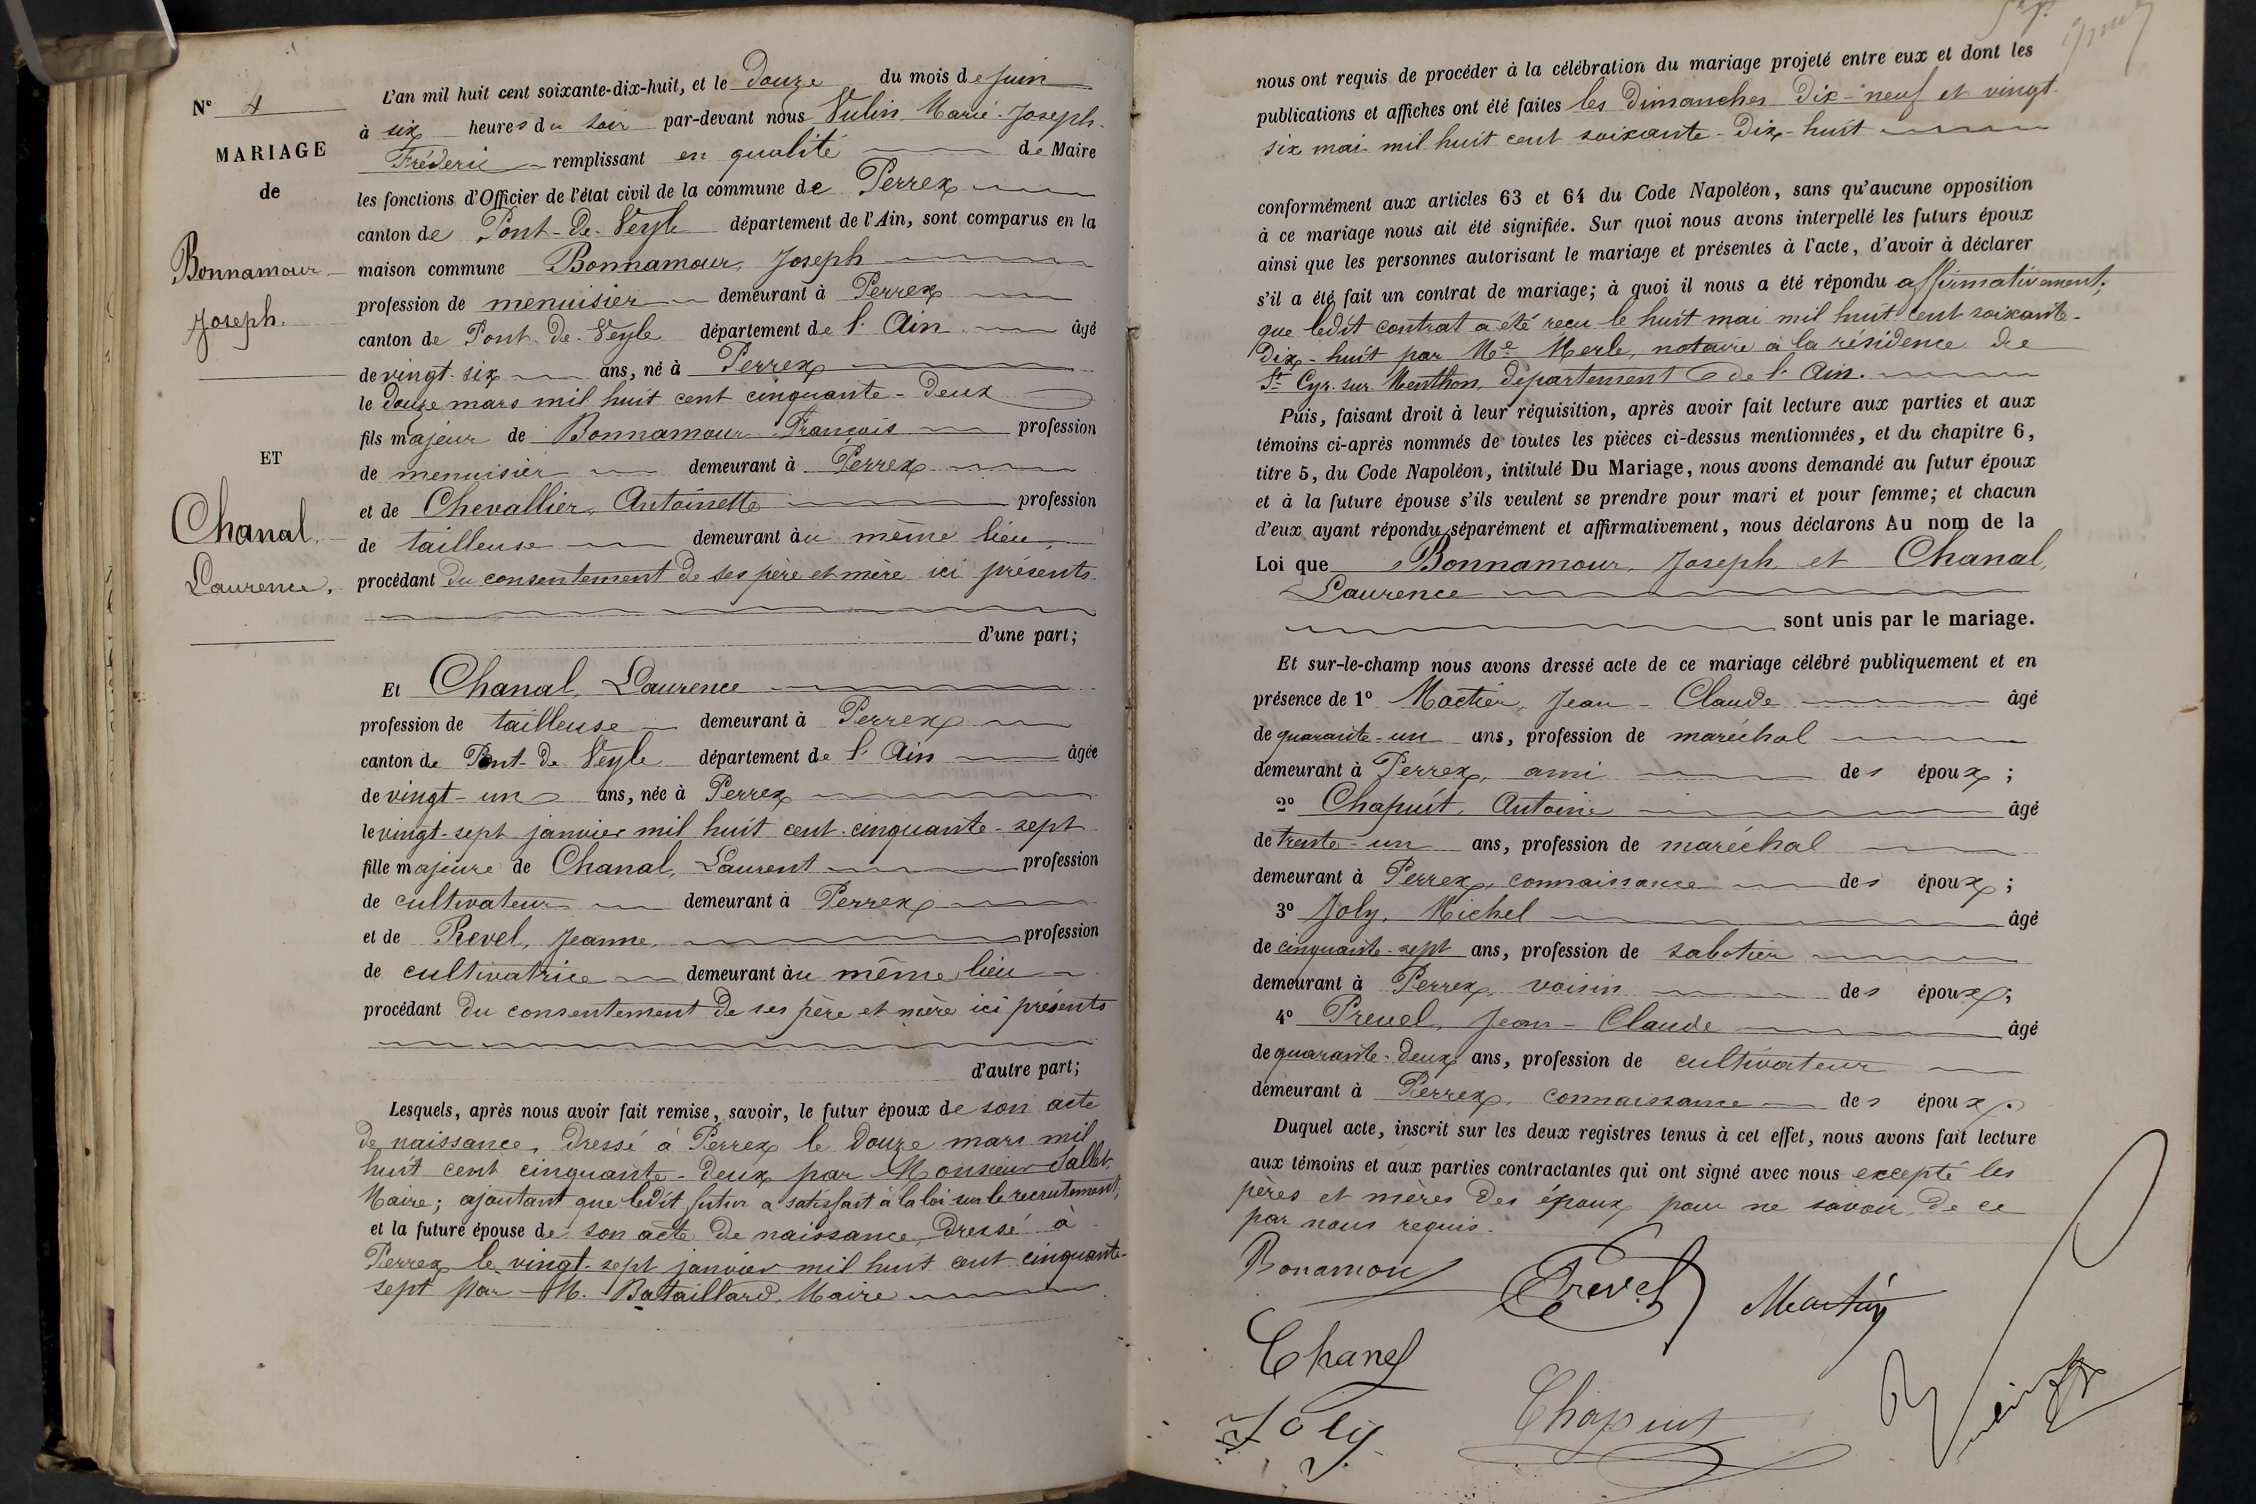 N° 4
MARIAGE
de
Bonnamour
Joseph.
ET
Chanal,
Laurence.
L'an mil huit cent soixante-dix-huit, et le douze du mois de juin
à six heures du soir par-devant nous Vulin, Marie-Joseph-
Fréderic remplissant en qualité de Maire
les fonctions d'Officier de l'état civil de la commune de Perrex
canton de Pont-de-Veyle département de l'Ain, sont comparus en la
maison commune Bonnamour, Joseph
profession de menuisier demeurant à Perrex
canton de Pont-de-Veyle département de l'Ain âgé
de vingt-six ans, né à Perrex
le douze mars mil huit cent cinquante-deux
fils majeur de Bonnamour François profession
de menuisier demeurant à Perrex
et de Chevallier, Antoinette profession
de tailleuse demeurant au même lieu,
procédant du consentement de ses père et mère ici présents
d'une part;
Et Chanal, Laurence
profession de tailleuse demeurant à Perrex
canton de Pont-de-Veyle département de l'Ain âgée
de vingt-un ans, née à Perrex
le vingt-sept janvier mil huit cent cinquante-sept
fille majeure de Chanal, Laurent profession
de cultivateur demeurant à Perrex
et de Revel, Jeanne, profession
de cultivatrice demeurant au même lieu
procédant du consentement de ses père et mère ici présents
d'autre part;
Lesquels, après nous avoir fait remise, savoir, le futur époux de son acte
de naissance, dressé à Perrex le douze mars mil
huit cent cinquante-deux par Monsieur Sallet,
Maire; ajoutant que ledit futur a satisfait à la loi sur le recrutement,
et la future épouse de son acte de naissance, dressé à
Perrex le vingt-sept janvier mil huit cent cinquante-
sept par M. Bataillard, Maire
nous ont requis de procéder à la célébration du mariage projeté entre eux et dont les
publications et affiches ont été faites les dimanches dix-neuf et vingt-
six mai mil huit cent soixante-dix-huit
conformément aux articles 63 et 64 du Code Napoléon, sans qu'aucune opposition
à ce mariage nous ait été signifiée. Sur quoi nous avons interpellé les futurs époux
ainsi que les personnes autorisant le mariage et présentes à l'acte, d'avoir à déclarer
s'il a été fait un contrat de mariage; à quoi il nous a été répondu affirmativement;
que ledit contrat a été reçu le huit mai mil huit cent soixante-
dix-huit par Me Merle, notaire à la résidence de
St Cyr-sur-Menthon, département de l'Ain.
Puis, faisant droit à leur réquisition, après avoir fait lecture aux parties et aux
témoins ci-après nommés de toutes les pièces ci-dessus mentionnées, et du chapitre 6,
titre 5, du Code Napoléon, intitulé Du Mariage, nous avons demandé au futur époux
et à la future épouse s'ils veulent se prendre pour mari et pour femme; et chacun
d'eux ayant répondu séparément et affirmativement, nous déclarons Au nom de la
Loi que Bonnamour, Joseph et Chanal,
Laurence
sont unis par le mariage.
Et sur-le-champ nous avons dressé acte de ce mariage célébré publiquement et en
présence de 1° Jean-Claude âgé
de quarante-un ans, profession de maréchal
demeurant à Perrex, ami des époux;
2° Chapuit, Antoine âgé
de trente-un ans, profession de maréchal
demeurant à Perrex, connaissance des époux;
3° Joly, Michel âgé
de cinquante-sept ans, profession de sabotier
demeurant à Perrex, voisin des époux;
4° Prevel, Jean-Claude âgé
de quarante-deux ans, profession de cultivateur
demeurant à Perrex, connaissance des époux.
Duquel acte, inscrit sur les deux registres tenus à cet effet, nous avons fait lecture
aux témoins et aux parties contractantes qui ont signé avec nous excepté les
pères et mères des époux pour ne savoir de ce
par nous requis.
Bonamour Prevel
Chanel
Joly Chapuit